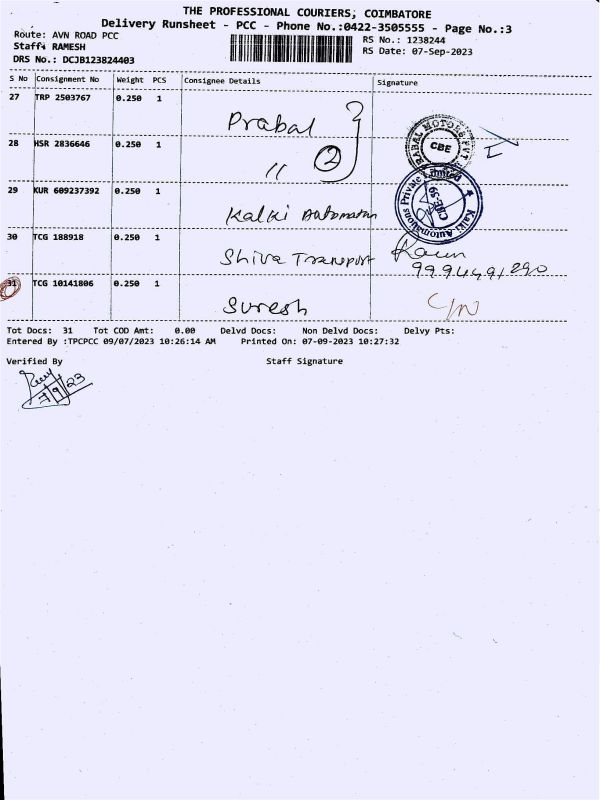 THE PROFESSIONAL COURIERS, COIMBATORE
Delivery Runsheet - PCC - Phone No.:0422-3505555 - Page No.:3
Route: AVN ROAD PCC
RS No.: 1238244
Staff: RAMESH
RS Date: 07-Sep-2023
DRS No.: DCJB123824403
S No Consignment No Weight PCS Consignee Details Signature
27 TRP 2503767 0.250 1
Prabal
28 HSR 2836646 0.250 1
〃 2
CBE
29 KUR 609237392 0.250 1
Kalki Automation
Kalki Automations Private Limited
CBE-59
30 TCG 188918 0.250 1
Shiva Transport
9994491290
31 TCG 10141806 0.250 1
Suresh
Tot Docs: 31 Tot COD Amt: 0.00 Delvd Docs: Non Delvd Docs: Delvy Pts:
Entered By :TPCPCC 09/07/2023 10:26:14 AM Printed On: 07-09-2023 10:27:32
Verified By Staff Signature
7/9/23